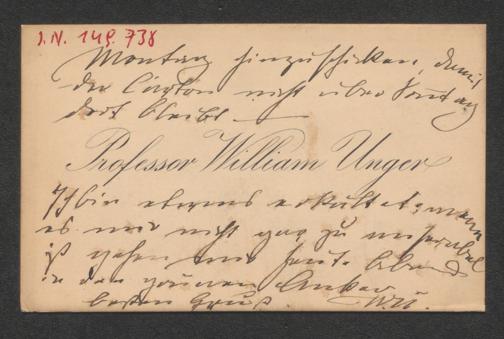 J.N. 149.738
Montag hinzuschicken, damit
der Carton nicht über Sonntag
dort bleibt.
Professor William Unger
Ich bin etwas erkältet, wenn
es mir nicht gar zu miserabel
ist gehen wir heute Abend
in den grünen Anker
besten Gruß. W.U.